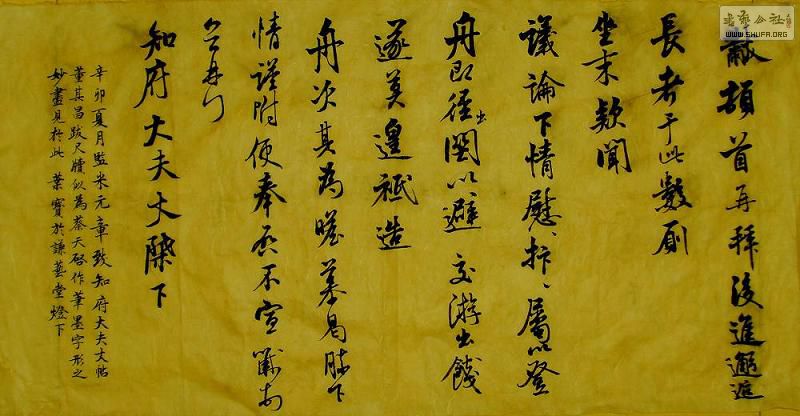 書藝公社
WWW.SHUFA.ORG
黻頓首再拜後進邂逅
長者于此數厠
坐末款聞
議論下情慰、抃、屬以登
舟即徑出關以避交游出餞
遂莫遑祗造
舟次其為瞻慕曷勝下
情謹附便奉啓不宣黻頓首
再拜
知府大夫丈棨下
辛卯夏月臨米元章致知府大夫丈帖
董其昌跋尺牘似為蔡天啓作筆墨字形之
妙盡見於此 葉寶於謙藝堂燈下